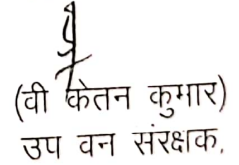 (वी केतन कुमार)
उप वन संरक्षक,